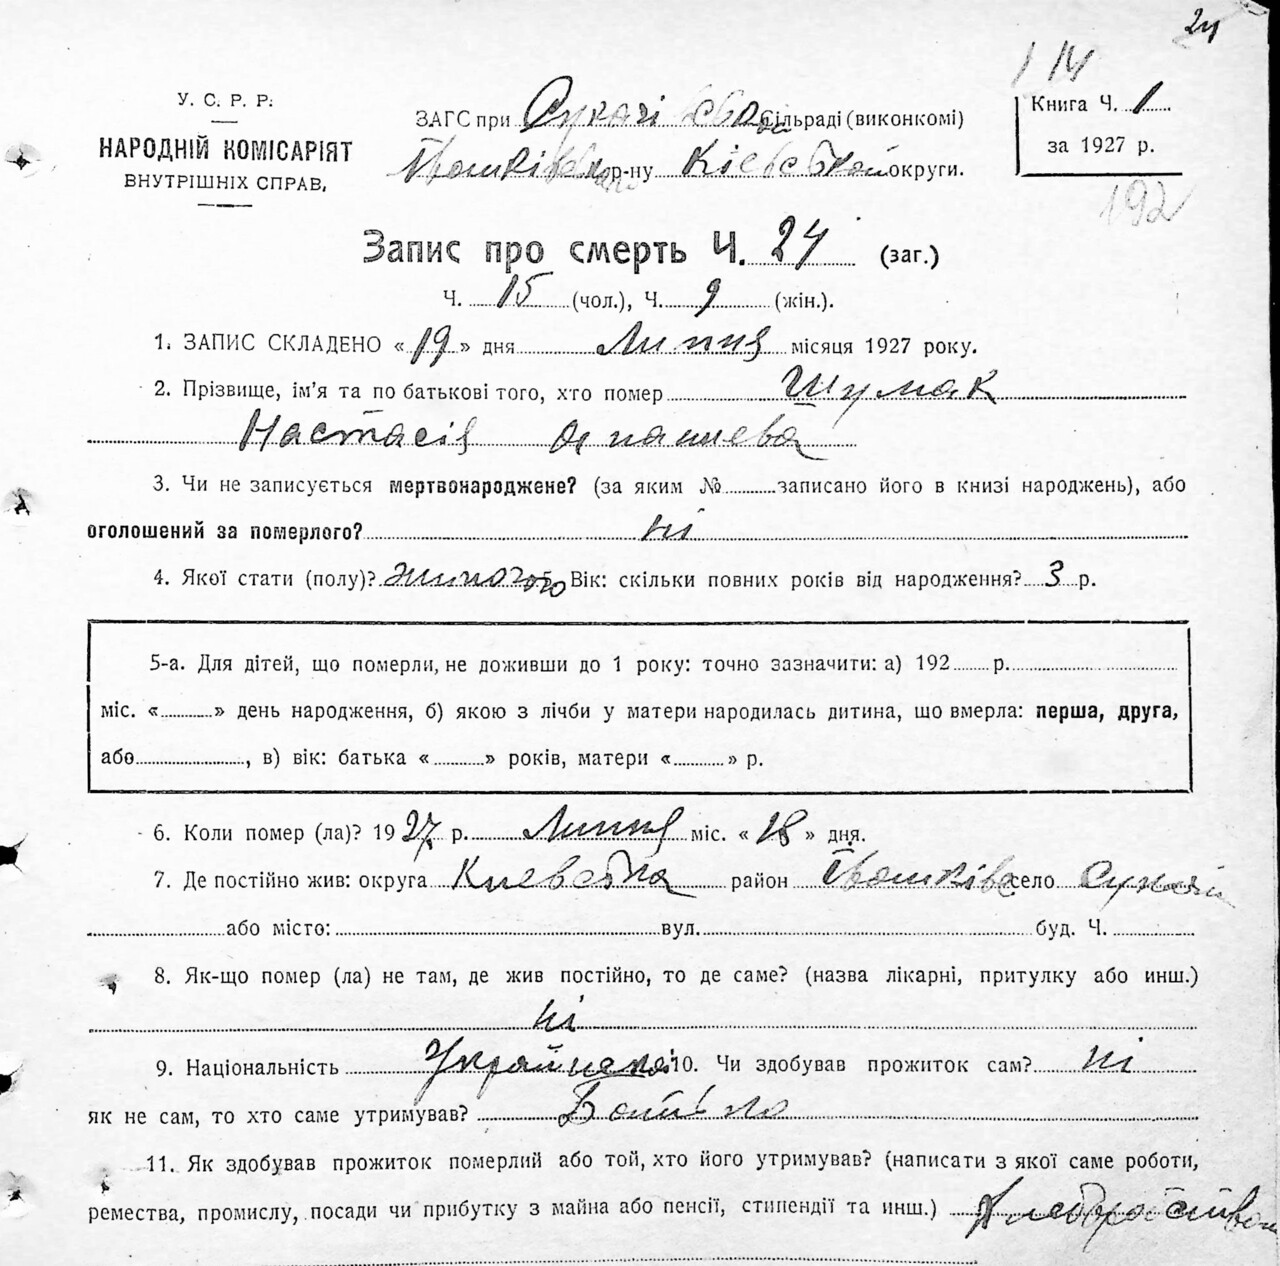 24
114
У. С. Р. Р.
НАРОДНІЙ КОМІСАРІЯТ
ВНУТРІШНІХ СПРАВ,
ЗАГС при Сукачівській Сільраді (виконкомі)
р-ну Київської округи.
Книга Ч. 1
за 1927 р.
192
Запис про смерть Ч. 24 (заг.)
Ч. 15 (чол.), Ч. 9 (жін.).
1. ЗАПИС СКЛАДЕНО « 19 » дня Липня місяця 1927 року.
2. Прізвище, ім'я та по батькові того, хто помер Шумак
Настасія
3. Чи не записується мертвонароджене? (за яким № записано його в книзі народжень), або
оголошений за померлого? ні
4. Якої стати (полу)? жиночого 5. Вік: скільки повних років від народження? 3 р.
5-а. Для дітей, що померли, не доживши до 1 року: точно зазначити: а) 192 р.
міс. « » день народження, б) якою з лічби у матери народилась дитина, що вмерла: перша, друга,
або , в) вік: батька « » років, матери « » р.
6. Коли помер (ла)? 1927 р. Липня міс. « 18 » дня.
7. Де постійно жив: округа Киевська район село Сукачі
або місто: вул. буд. Ч.
8. Як-що помер (ла) не там, де жив постійно, то де саме? (назва лікарні, притулку або инш.)
ні
9. Національність 10. Чи здобував прожиток сам? ні
як не сам, то хто саме утримував? Батько
11. Як здобував прожиток померлий або той, хто його утримував? (написати з якої саме роботи,
ремества, промислу, посади чи прибутку з майна або пенсії, стипендії та инш.)